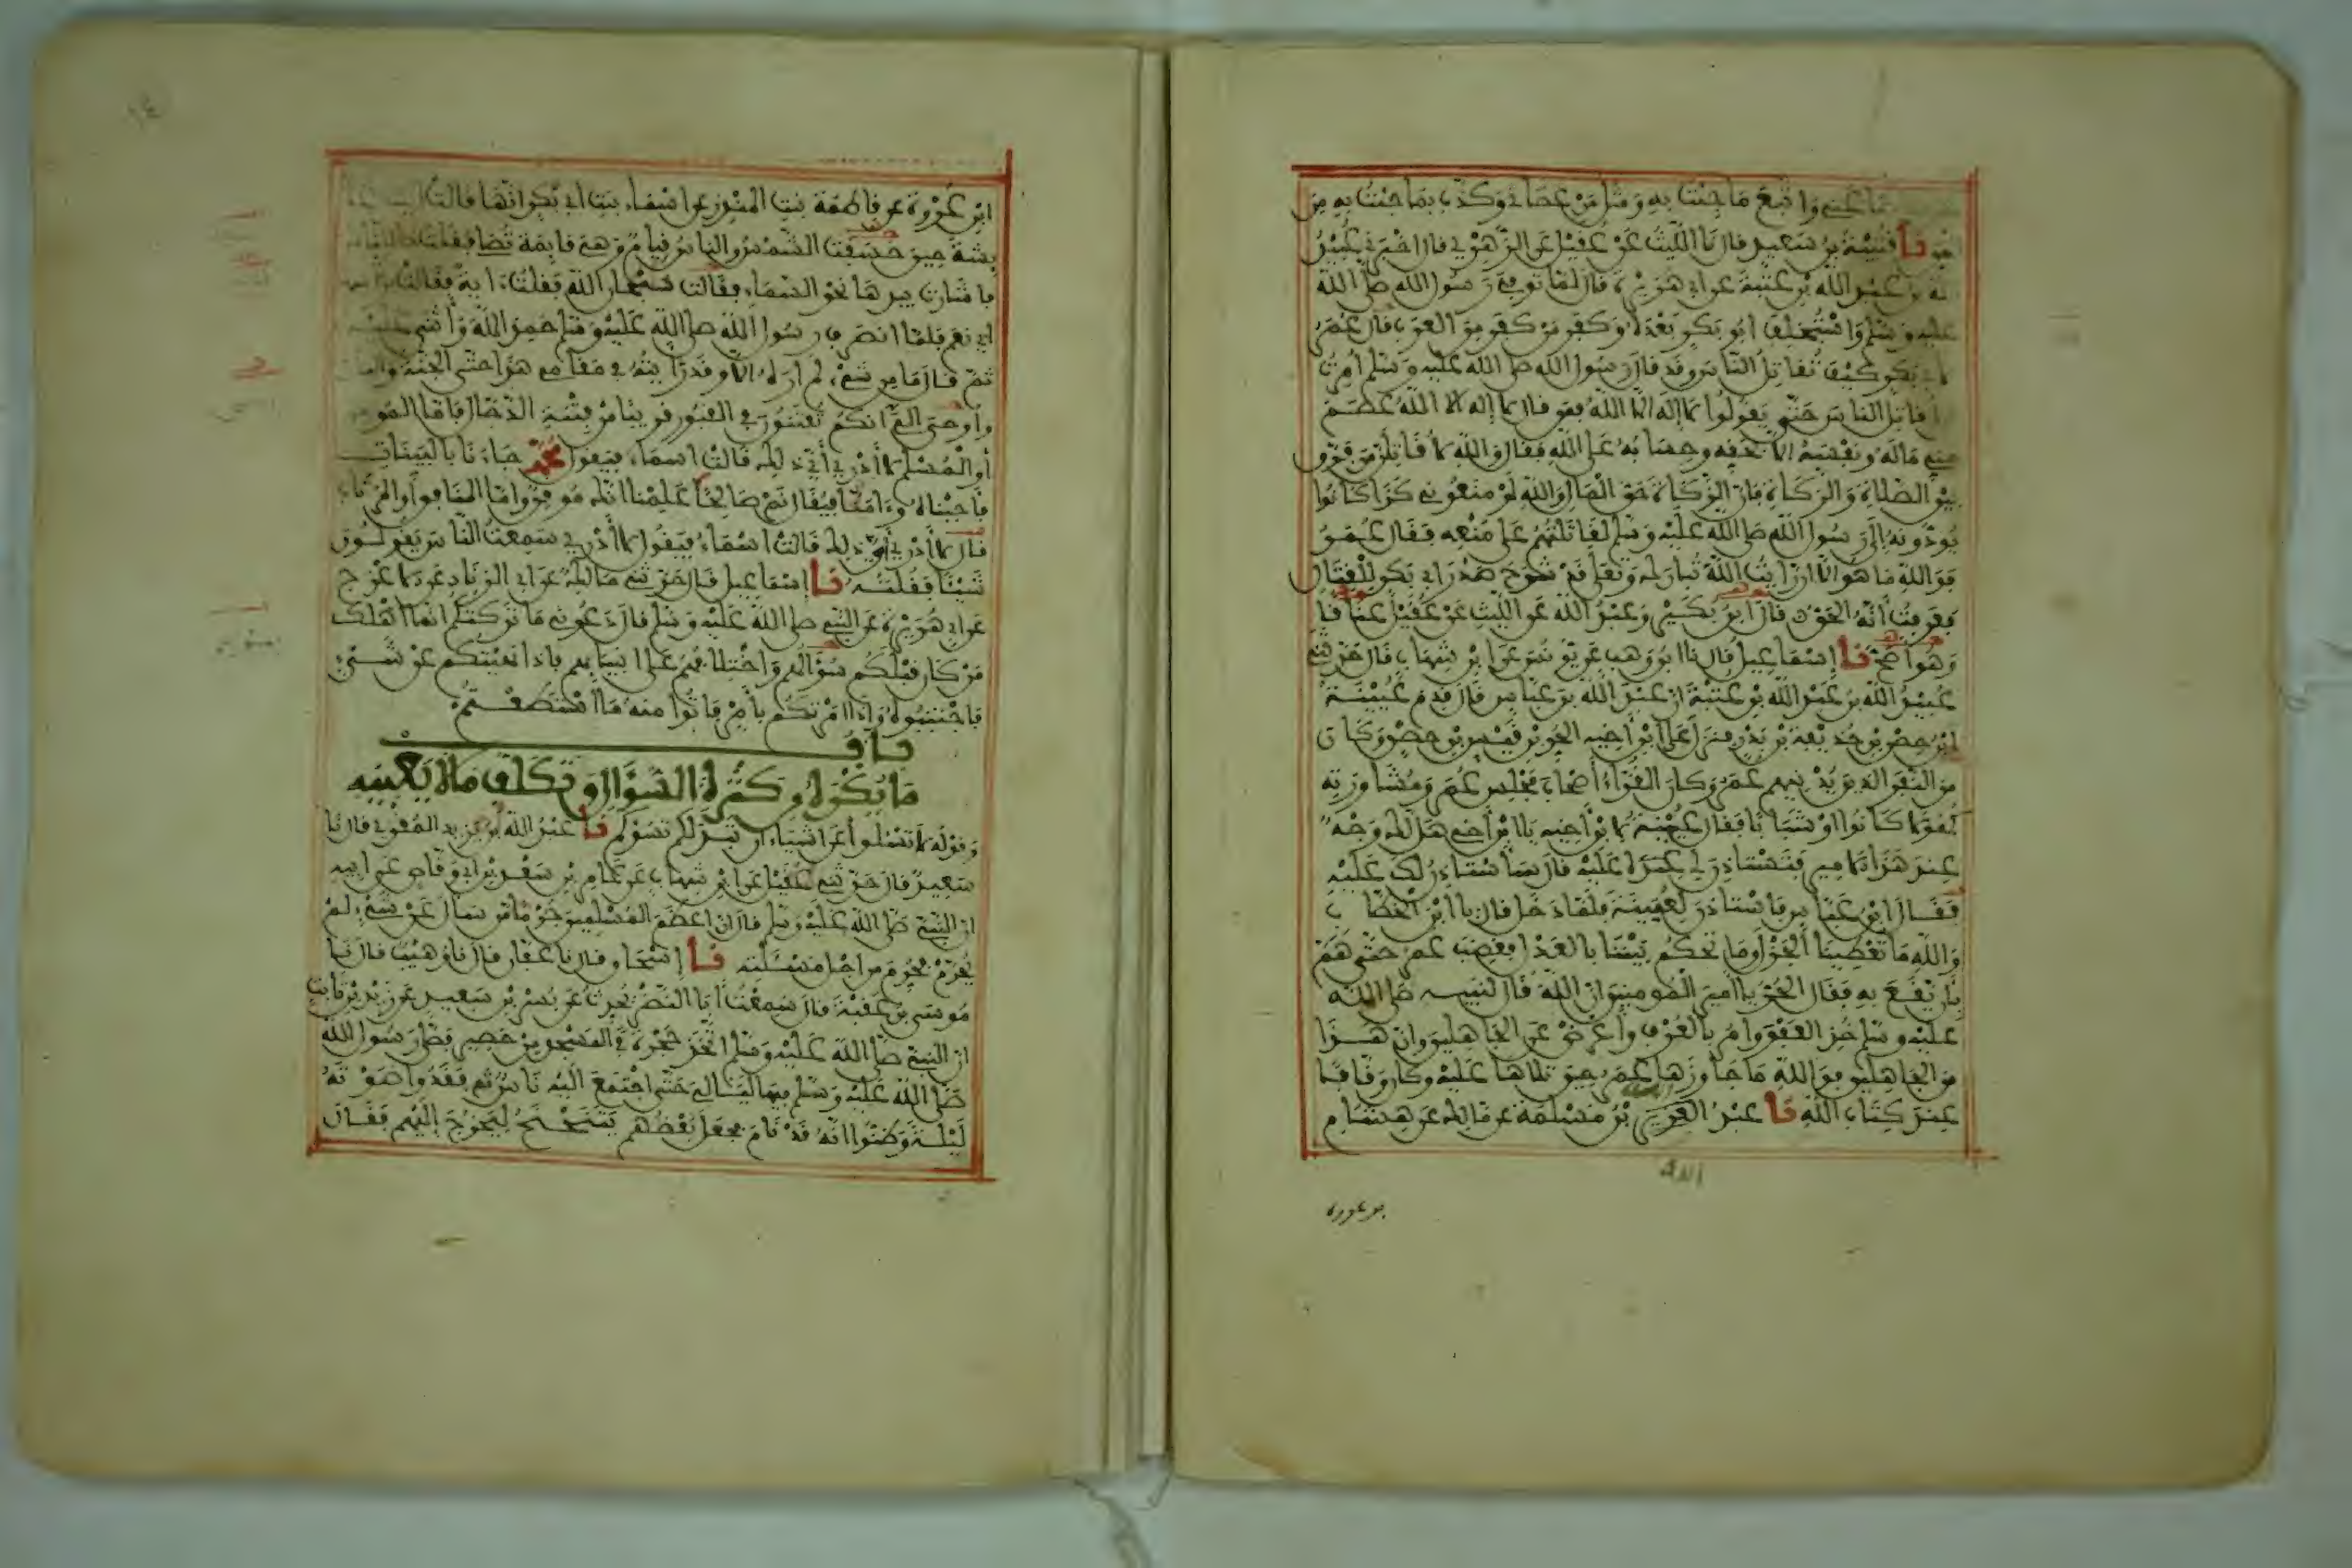 أطاعني واتبع ما جئت به ومثل من عصاني وكذب بما جئت به من
الحق نا قتيبة بن سعيد قال نا الليث عن عقيل عن الزهري قال اخبرني عبيد
الله بن عبد الله بن عتبة عن ابي هريرة قال لما توفي رسول الله صلى الله
عليه وسلم واستخلف ابو بكر بعده وكفر من كفر من العرب قال عمر
لابي بكر كيف تقاتل الناس وقد قال رسول الله صلى الله عليه وسلم امرت
ان اقاتل الناس حتى يقولوا لا إله الا الله فمن قال لا إله الا الله عصم
مني ماله ونفسه الا بحقه وحسابه على الله فقال والله لأقاتلن من فرق
بين الصلاة والزكاة فان الزكاة حق المال والله لو منعوني كذا كانوا
يودونه إلى رسول الله صلى الله عليه وسلم لقاتلتهم على منعه فقال عمر
فوالله ما هو الا ان رأيت الله تبارك وتعلى قد شرح صدر ابي بكر للقتال
فعرفت أنه الحق قال ابن بكير وعبد الله عن الليث عن عقيل عناقا
وهو اصح نا إسماعيل قال نا ابن وهب عن يونس عن ابن شهاب قال حدثني
عبيد الله بن عبد الله بن عتبة ان عبد الله بن عباس قال قدم عيينة
ابن حصن بن حذيفة بن بدر فنزل على ابن أخيه الحر بن قيس بن حصن وكان
من النفر الذين يدنيهم عمر وكان القراء أصحاب مجلس عمر ومشاورته
كهولا كانوا او شبابا فقال عيينة لابن أخيه يا ابن أخي هل لك وجه
عند هذا الامير فتستاذن لي عليه قال سأستاذن لك عليه
فقال ابن عباس فاستاذن لعيينة فلما دخل قال يا ابن الخطاب
والله ما تعطينا الجزل وما تحكم بيننا بالعدل فغضب عمر حتى هم
بأن يقع به فقال الحر يا امير المومنين ان الله قال لنبيه صلى الله
عليه وسلم خذ العفو وامر بالعرف وأعرض عن الجاهلين وان هذا
من الجاهلين فوالله ما جاوزها عمر حين تلاها عليه وكان وقافا
عند كتاب الله نا عبد الله بن مسلمة عن مالك عن هشام
الله
بن عروة
١٤
ابن عروة عن فاطمة بنت المنذر عن اسماء بنت ابي بكر انها قالت اتيت
عائشة حين خسفت الشمس والناس قيام وهي قايمة تصلي فقلت ما للناس
فاشارت بيدها نحو السماء فقالت سبحان الله فقلت ءاية فقالت برأسها
اي نعم فلما انصرف رسول الله صلى الله عليه وسلم حمد الله وأثنى عليه
ثم قال ما من شيء لم أره الا وقد رأيته في مقامي هذا حتى الجنة والنار
وأوحي الي أنكم تفتنون في القبور قريبا من فتنة الدجال فاما المومن
أو المسلم لا أدري أي ذلك قالت اسماء فيقول محمد جاءنا بالبينات
فأجبناه وءامنا فيقال نم صالحا علمنا انك موقن واما المنافق أو المرتاب
قال لا أدري أي ذلك قالت اسماء فيقول لا أدري سمعت الناس يقولون
شيئا فقلته نا إسماعيل قال حدثني مالك عن ابي الزناد عن الاعرج
عن ابي هريرة عن النبي صلى الله عليه وسلم قال دعوني ما تركتكم انما اهلك
من كان قبلكم سؤالهم واختلافهم على انبيايهم فاذا نهيتكم عن شيء
فاجتنبوه واذا امرتكم بأمر فاتوا منه ما استطعتم
باب
ما يكره من كثرة السؤال وتكلف ما لا يعنيه
وقوله لا تسئلوا عن اشياء ان تبد لكم تسؤكم نا عبد الله بن يزيد المقري قال نا
سعيد قال حدثني عقيل عن ابن شهاب عن عامر بن سعد بن ابي وقاص عن ابيه
ان النبي صلى الله عليه وسلم قال ان اعظم المسلمين جرما من سأل عن شيء لم
يحرم فحرم من اجل مسئلته نا إسحاق قال نا عفان قال نا وهيب قال نا
موسى بن عقبة قال سمعت أبا النضر يحدث عن بسر بن سعيد عن زيد بن ثابت
ان النبي صلى الله عليه وسلم اتخذ حجرة في المسجد من حصير فصلى رسول الله
صلى الله عليه وسلم فيها ليالي حتى اجتمع اليه ناس ثم فقدوا صوته
ليلة وظنوا انه قد نام فجعل بعضهم يتنحنح ليخرج إليهم فقال